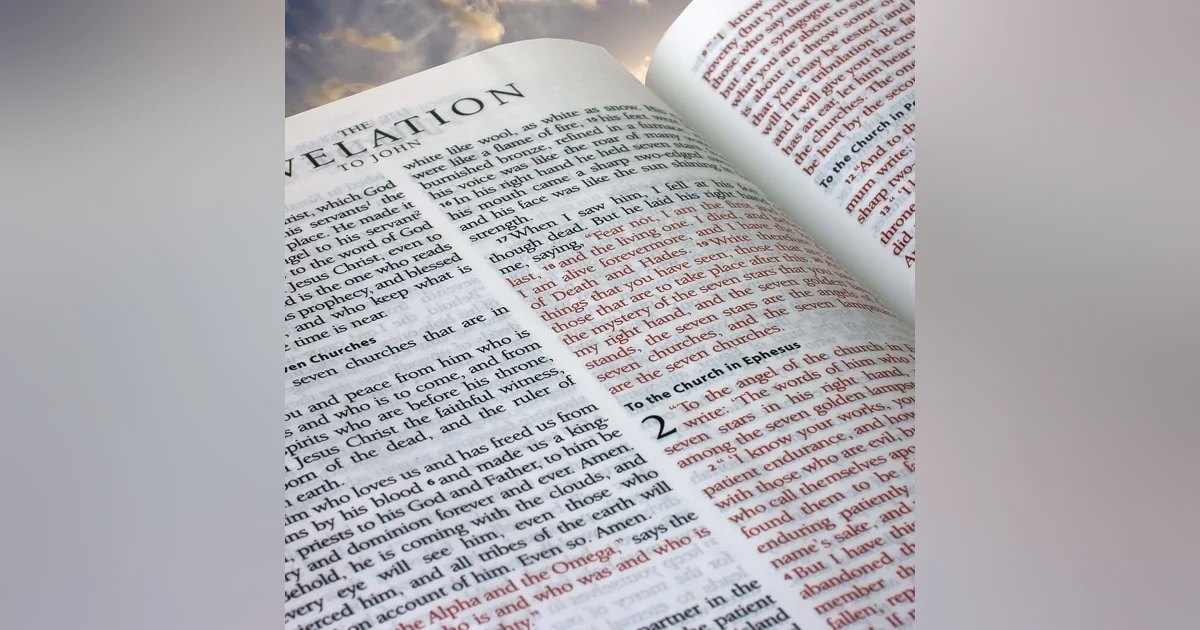 THE
VELATION
TO JOHN
rist, which God
his servants' the
place. He made it
gel to his servant
to the word of God
Jesus Christ, even to
d is the one who reads
s prophecy, and blessed
and who keep what is
time is near.
ven Churches
seven churches that are in
ou and peace from him who is
s and who is to come, and from
pirits who are before his throne,
Jesus Christ the faithful witness,
orn of the dead, and the ruler of
earth.
im who loves us and has freed us from
ns by his blood 6 and made us a king-
priests to his God and Father, to him be
ry and dominion forever and ever. Amen.
ehold, he is coming with the clouds, and
very eye will see him, even those who
ierced him, and all tribes of the earth will
on account of him. Even so. Amen.
the Alpha and the Omega," says the
ho is and who was and who is
ghty."
partner in the
the patient
island
white like wool, as white as snow.
were like a flame of fire, 15 his feet were
burnished bronze, refined in a furnace
his voice was like the roar of many
16 In his right hand he held seven stars
his mouth came a sharp two-edged
and his face was like the sun shining
strength.
17 When I saw him, I fell at his feet
though dead. But he laid his right hand
me, saying, "Fear not, I am the first
last, 18 and the living one. I died, and
I am alive forevermore, and I have
of Death and Hades. 19 Write therefore
things that you have seen, those that
those that are to take place after this.
the mystery of the seven stars that you
my right hand, and the seven golden
stands, the seven stars are the angels
seven churches, and the seven lampstands
are the seven churches.
To the Church in Ephesus
2 "To the angel of the church in
write: 'The words of him who
seven stars in his right hand,
among the seven golden lamps
2 "'I know your works, yo
patient endurance, and how
with those who are evil, b
who call themselves apo
found them to be
enduring patiently
name's sake, and
4 But I have this
abandoned th
member
fallen; rep
If
9 "'I know you
poverty (but you
those who say that
a synagogue
you are about to suf
is about to throw some of
that you may be tested, and
will have tribulation. Be fai
and I will give you the crow
has an ear, let him hear
the churches. The one
be hurt by the secon
To the Church in Pe
12 "And to th
mum write:
sharp two-
13 "'I
throne
did